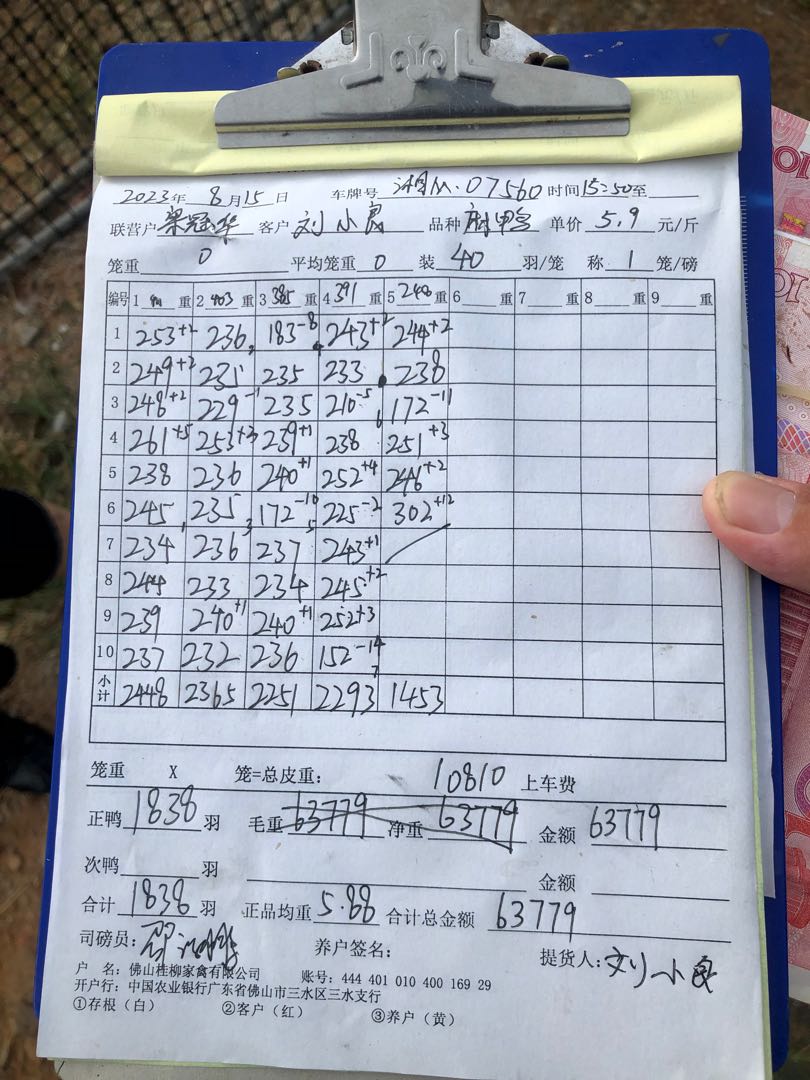 2023年 8月15日 车牌号 湘M·07560 时间15:50至
联营户 梁冠华 客户 刘小良 品种 单价 5.9 元/斤
笼重 0 平均笼重 0 装 40 羽/笼 称 1 笼/磅
编号 1 重 2 403 重 3 385 重 4 391 重 5 248 重 6 重 7 重 8 重 9 重
1 253+2 236 183-8 243+2 244+2
2 249+2 235 235 233 238
3 248+2 229-1 235 210-5 172-11
4 261+5 253+3 239+1 238 251+3
5 238 236 240+1 252+4 246+2
6 245 235 172-10 225-2 302+12
7 234 236 237 243+1
8 244 233 234 245+2
9 239 240+1 240+1 252+3
10 237 232 236 152-14
小计 2448 2365 2251 2293 1453
笼重 X 笼=总皮重: 10810 上车费
正鸭 1838 羽 毛重 63779 净重 63779 金额 63779
次鸭 羽 金额
合计 1838 羽 正品均重 5.88 合计总金额 63779
司磅员: 养户签名: 提货人: 刘小良
户 名: 佛山桂柳家禽有限公司 账号: 444 401 010 400 169 29
开户行: 中国农业银行广东省佛山市三水区三水支行
①存根(白) ②客户(红) ③养户(黄)